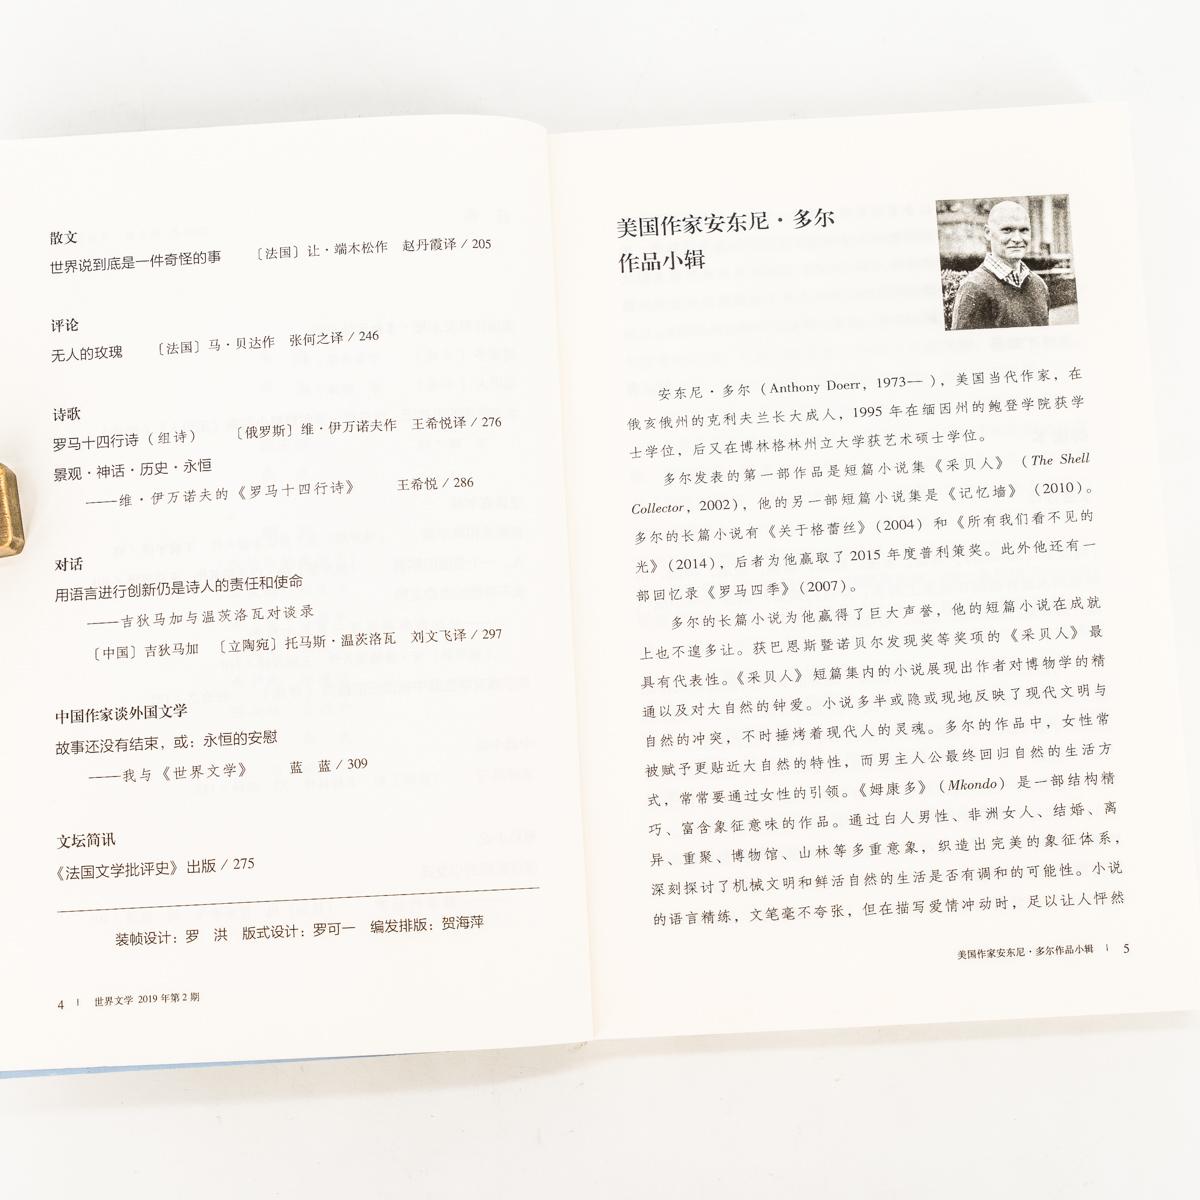 散文
世界说到底是一件奇怪的事 〔法国〕让·端木松作 赵丹霞译 / 205
评论
无人的玫瑰 〔法国〕马·贝达作 张何之译 / 246
诗歌
罗马十四行诗（组诗） 〔俄罗斯〕维·伊万诺夫作 王希悦译 / 276
景观·神话·历史·永恒
——维·伊万诺夫的《罗马十四行诗》 王希悦 / 286
对话
用语言进行创新仍是诗人的责任和使命
——吉狄马加与温茨洛瓦对谈录
〔中国〕吉狄马加 〔立陶宛〕托马斯·温茨洛瓦 刘文飞译 / 297
中国作家谈外国文学
故事还没有结束，或：永恒的安慰
——我与《世界文学》 蓝 蓝 / 309
文坛简讯
《法国文学批评史》出版 / 275
装帧设计：罗 洪 版式设计：罗可一 编发排版：贺海萍
4 | 世界文学 2019 年第 2 期
美国作家安东尼·多尔
作品小辑
安东尼·多尔（Anthony Doerr, 1973— ），美国当代作家，在
俄亥俄州的克利夫兰长大成人，1995 年在缅因州的鲍登学院获学
士学位，后又在博林格林州立大学获艺术硕士学位。
多尔发表的第一部作品是短篇小说集《采贝人》（The Shell
Collector, 2002），他的另一部短篇小说集是《记忆墙》（2010）。
多尔的长篇小说有《关于格蕾丝》（2004）和《所有我们看不见的
光》（2014），后者为他赢取了 2015 年度普利策奖。此外他还有一
部回忆录《罗马四季》（2007）。
多尔的长篇小说为他赢得了巨大声誉，他的短篇小说在成就
上也不遑多让。获巴恩斯暨诺贝尔发现奖等奖项的《采贝人》最
具有代表性。《采贝人》短篇集内的小说展现出作者对博物学的精
通以及对大自然的钟爱。小说多半或隐或现地反映了现代文明与
自然的冲突，不时捶烤着现代人的灵魂。多尔的作品中，女性常
被赋予更贴近大自然的特性，而男主人公最终回归自然的生活方
式，常常要通过女性的引领。《姆康多》（Mkondo）是一部结构精
巧、富含象征意味的作品。通过白人男性、非洲女人、结婚、离
异、重聚、博物馆、山林等多重意象，织造出完美的象征体系，
深刻探讨了机械文明和鲜活自然的生活是否有调和的可能性。小说
的语言精练，文笔毫不夸张，但在描写爱情冲动时，足以让人怦然
美国作家安东尼·多尔作品小辑 | 5